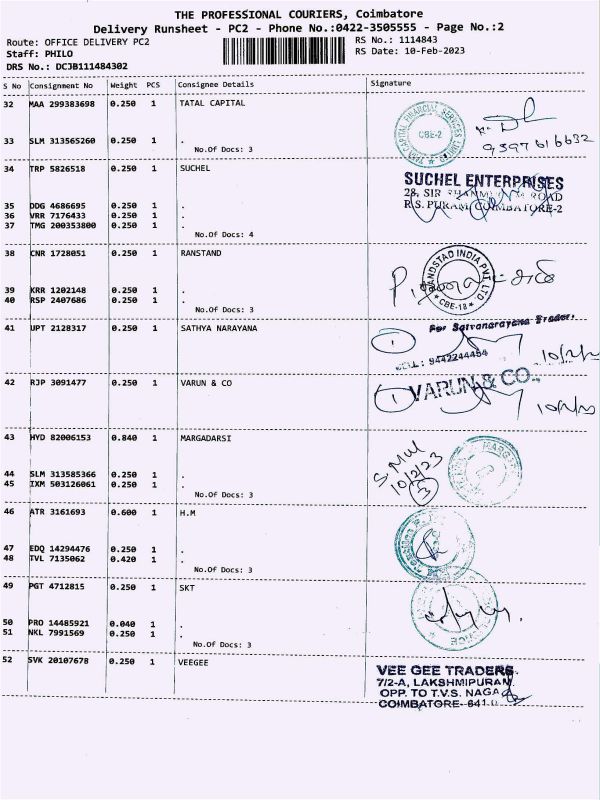 THE PROFESSIONAL COURIERS, Coimbatore
Delivery Runsheet - PC2 - Phone No.:0422-3505555 - Page No.:2
Route: OFFICE DELIVERY PC2
RS No.: 1114843
Staff: PHILO
RS Date: 10-Feb-2023
DRS No.: DCJB111484302
S No Consignment No Weight PCS Consignee Details Signature
32 MAA 299383698 0.250 1 TATAL CAPITAL
CBE-2
33 SLM 313565260 0.250 1 .
9397616632
No.Of Docs: 3
34 TRP 5826518 0.250 1 SUCHEL
SUCHEL ENTERPRISES
28, SIR ROAD
R.S. PURAM, COIMBATORE-2
35 DDG 4686695 0.250 1 .
36 VRR 7176433 0.250 1 .
37 TMG 200353800 0.250 1 .
No.Of Docs: 4
38 CNR 1728051 0.250 1 RANSTAND
RANDSTAD INDIA PVT. LTD.
CBE-18
39 KRR 1202148 0.250 1 .
40 RSP 2407686 0.250 1 .
No.Of Docs: 3
41 UPT 2128317 0.250 1 SATHYA NARAYANA
For Satyanarayana Trader.
1
CELL: 9442244454
42 RJP 3091477 0.250 1 VARUN & CO
VARUN & CO.
1
43 HYD 82006153 0.840 1 MARGADARSI
10/2/23
3
44 SLM 313585366 0.250 1 .
45 IXM 503126061 0.250 1 .
No.Of Docs: 3
46 ATR 3161693 0.600 1 H.M
47 EDQ 14294476 0.250 1 .
48 TVL 7135062 0.420 1 .
No.Of Docs: 3
49 PGT 4712815 0.250 1 SKT
50 PRO 14485921 0.040 1 .
51 NKL 7991569 0.250 1 .
No.Of Docs: 3
52 SVK 20107678 0.250 1 VEEGEE
VEE GEE TRADERS
7/2-A, LAKSHMIPURAM
OPP. TO T.V.S. NAGA
COIMBATORE- 641 0